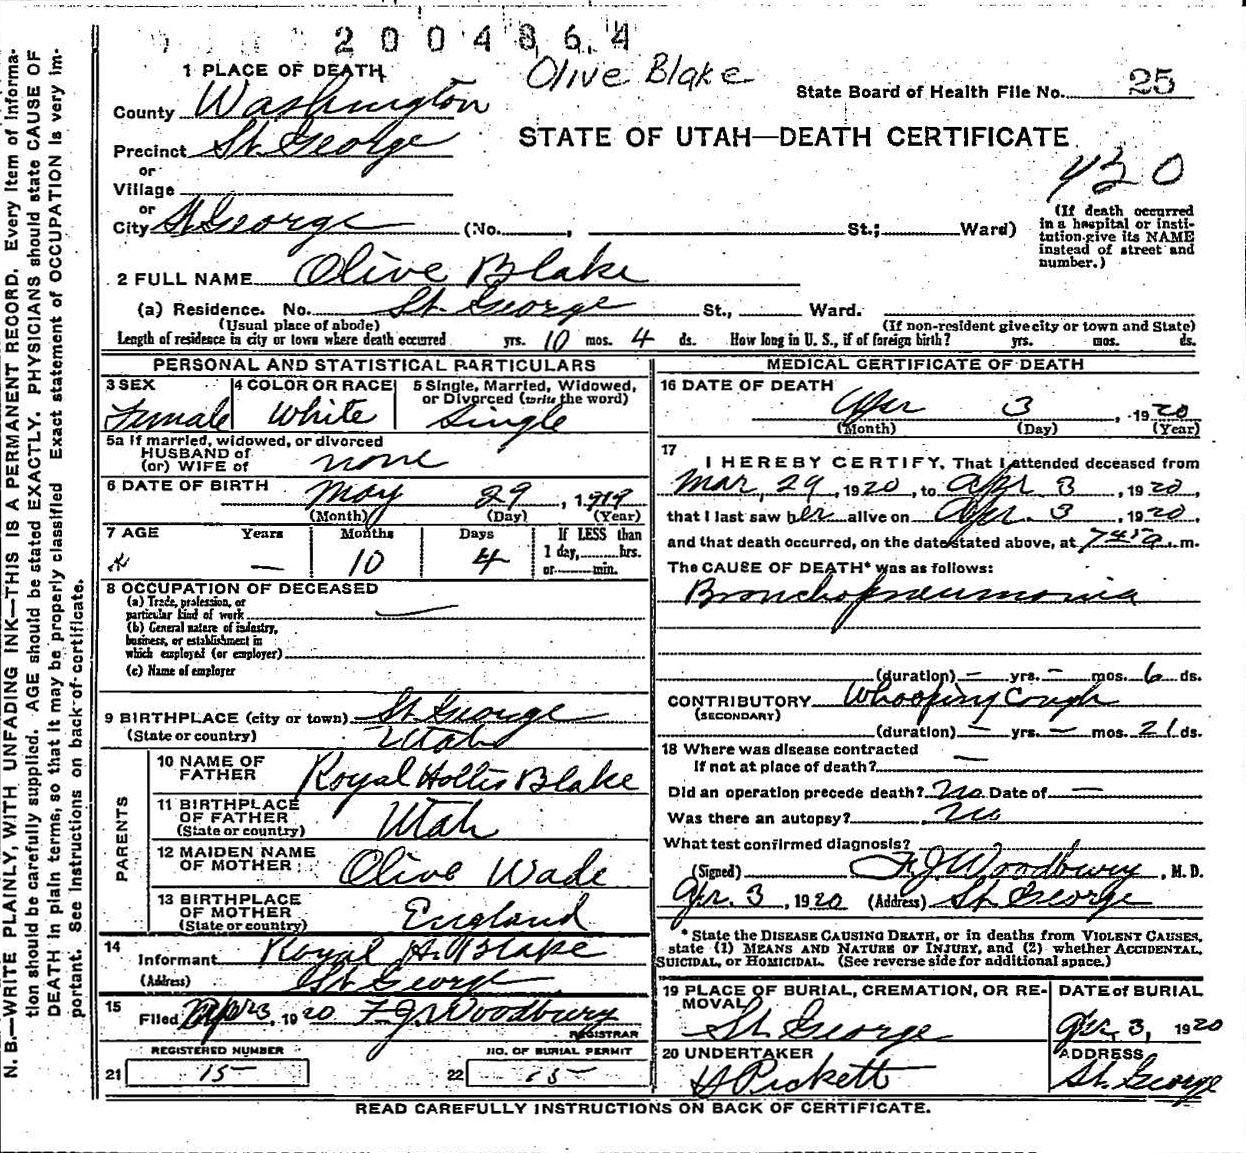 2004864
Olive Blake
1 PLACE OF DEATH
State Board of Health File No. 25
County Washington
STATE OF UTAH—DEATH CERTIFICATE
Precinct St. George
or
Village
or
City St George (No. , St.; Ward)
(If death occurred
in a hospital or insti-
tution give its NAME
instead of street and
number.)
2 FULL NAME Olive Blake
(a) Residence. No. St. George St., Ward.
(Usual place of abode) (If non-resident give city or town and State)
Length of residence in city or town where death occurred yrs. 10 mos. 4 ds. How long in U. S., if of foreign birth? yrs. mos. ds.
PERSONAL AND STATISTICAL PARTICULARS
3 SEX
Female
4 COLOR OR RACE
White
5 Single, Married, Widowed,
or Divorced (write the word)
Single
5a If married, widowed, or divorced
HUSBAND of
(or) WIFE of none
6 DATE OF BIRTH May 29, 1919
(Month) (Day) (Year)
7 AGE Years Months Days If LESS than
— 10 4 1 day, hrs.
or min.
8 OCCUPATION OF DECEASED
(a) Trade, profession, or
particular kind of work
(b) General nature of industry,
business, or establishment in
which employed (or employer)
(c) Name of employer
9 BIRTHPLACE (city or town) St. George
(State or country) Utah
PARENTS
10 NAME OF
FATHER Royal Hollis Blake
11 BIRTHPLACE
OF FATHER
(State or country) Utah
12 MAIDEN NAME
OF MOTHER Olive Wade
13 BIRTHPLACE
OF MOTHER
(State or country) England
14
Informant Royal H. Blake
(Address) St George
15
Filed Apr 3, 1920 F. J. Woodbury
REGISTRAR
REGISTERED NUMBER NO. OF BURIAL PERMIT
21 15 22 15
MEDICAL CERTIFICATE OF DEATH
16 DATE OF DEATH
Apr 3, 1920
(Month) (Day) (Year)
17
I HEREBY CERTIFY, That I attended deceased from
Mar, 29, 1920, to Apr 3, 1920,
that I last saw her alive on Apr. 3, 1920,
and that death occurred, on the date stated above, at m.
The CAUSE OF DEATH* was as follows:
Bronchopneumonia
(duration) — yrs. — mos. 6 ds.
CONTRIBUTORY Whooping Cough
(SECONDARY)
(duration) — yrs. — mos. 21 ds.
18 Where was disease contracted
If not at place of death? —
Did an operation precede death? No Date of —
Was there an autopsy? No
What test confirmed diagnosis?
(Signed) F. J. Woodbury, M. D.
Apr. 3, 1920 (Address) St. George
* State the DISEASE CAUSING DEATH, or in deaths from VIOLENT CAUSES,
state (1) MEANS AND NATURE OF INJURY, and (2) whether ACCIDENTAL,
SUICIDAL, or HOMICIDAL. (See reverse side for additional space.)
19 PLACE OF BURIAL, CREMATION, OR RE-
MOVAL
St. George
DATE of BURIAL
Apr. 3, 1920
20 UNDERTAKER
Pickett
ADDRESS
St. George
READ CAREFULLY INSTRUCTIONS ON BACK OF CERTIFICATE.
N. B.—WRITE PLAINLY, WITH UNFADING INK—THIS IS A PERMANENT RECORD. Every item of informa-
tion should be carefully supplied. AGE should be stated EXACTLY. PHYSICIANS should state CAUSE OF
DEATH in plain terms, so that it may be properly classified. Exact statement of OCCUPATION is very im-
portant. See instructions on back of certificate.